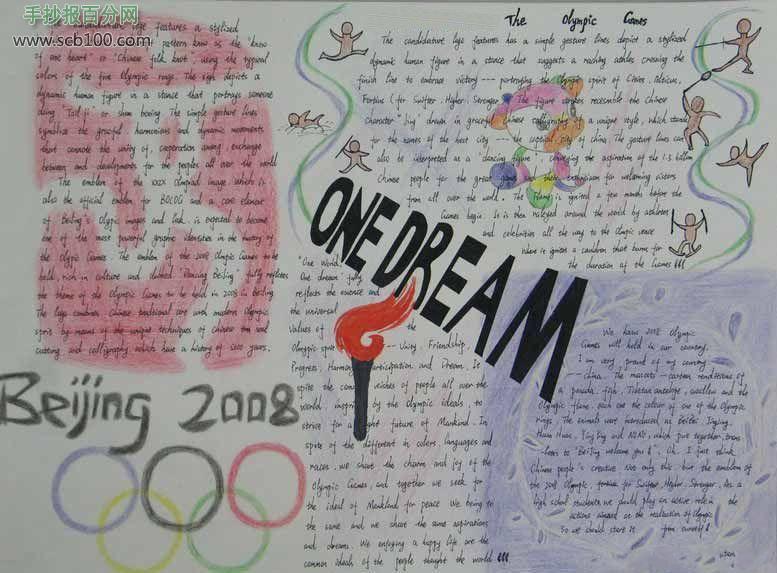 手抄报百分网
www.scb100.com
features a stylized
pattern know as the "know
of one heart" or "Chinese folk knot" using the typical
colors of the five Olympic rings. The sign depicts a
dynamic human figure in a stance that portrays someone
doing Taiji or sham boxing. The simple gesture lines
symbolize the graceful, harmonious and dynamic movements
that connote the unity of, cooperation among, exchange
between and developments for the peoples all over the world
The emblem of the XXIX Olympiad image which is
also the official emblem for BOCOG and a core element
of Beijing's Olympic images and look, is expected to become
one of the most powerful graphic identities in the history of
the Olympic Games. The emblem of the 2008 Olympic Games to be
held, rich in culture and dubbed "Dancing Beijing" fully reflects
the theme of the Olympic Games to be held in 2008 in Beijing.
The logo combines Chinese traditional art with modern Olympic
spirit by means of the unique techniques of Chinese
cutting and calligraphy which have a history of 5000 years.
Beijing 2008
The Olympic Games
The candidature logo features has a simple gesture lines depict a stylized
dynamic human figure in a stance that suggests a racing athlete crossing the
finish line to embrace victory --- portraying the Olympic spirit of Citius, Altius,
Fortius (for Swifter, Higher, Stronger). The figure strokes resemble the Chinese
character "Jing" drawn in graceful Chinese calligraphy in a unique style, which stands
for the names of the host city --- the capital city of China. The gesture lines can
also be interpreted as a "dancing figure" conveying the aspiration of the 1.3 billion
Chinese people for the great games their enthusiasm for welcoming visitors
from all over the world. The flame is ignited a few months before the
Games begin. It is then relayed around the world by athletes
and celebrities all the way to the Olympic venue
where it ignites a cauldron that burns for
the duration of the Games
ONE DREAM
"One World,
One dream" fully
reflects the essence and
the universal
values of the
Olympic spirit --- Unity, Friendship,
Progress, Harmony, Participation and Dream. In
spite the common wishes of people all over the
world, inspired by the Olympic ideals, to
strive for a bright future of Mankind. In
spite of the different in colors, languages and
races, we share the charm and joy of the
Olympic Games, and together we seek for
the ideal of Mankind for peace. We being to
the same and we share the same aspirations
and dreams. We enjoying a happy life are the
common ideals of the people thought the world
We have 2008 Olympic
Games will held in our country.
I am very proud of my country
--- China. The mascots - cartoon renditions of
a panda, fish, Tibetan antelope, swallow and the
Olympic flame, each one the colour of one of the Olympic
rings. The animals were introduced as BeiBei, Jingjing,
Huan Huan, YingYing and NiNi, which put together trans
lates to "Beijing welcome you". Oh. I just think
Chinese people's creative. Not only this, but the emblem of
the 2008 Olympic, for Swifter, Higher, Stronger. As a
high school students, we should play an active role in the
actions aimed at the realization of Olympic
So we should start it from ourself